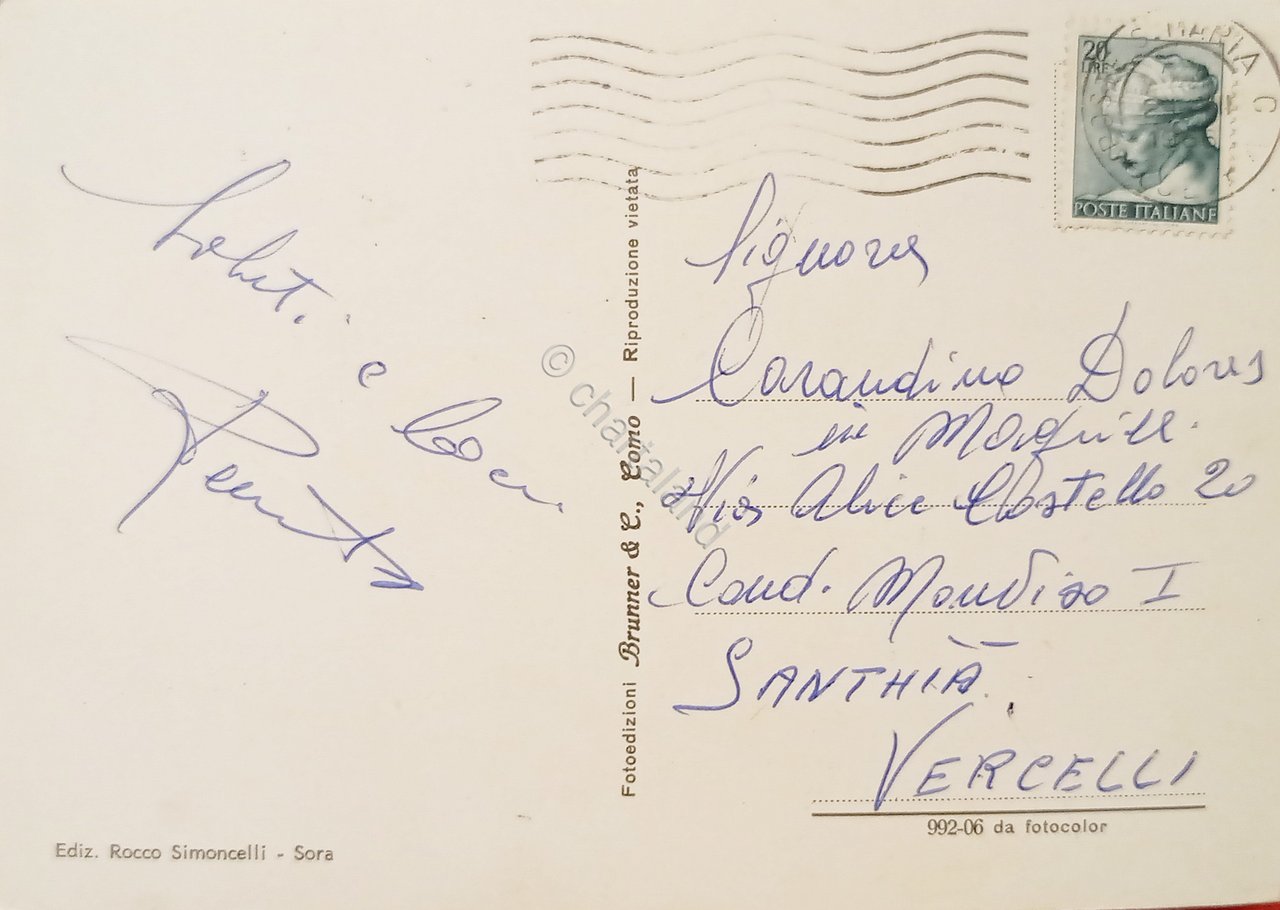 20
LIRE
POSTE ITALIANE
S. MARIA C
Saluti
e baci
Renata
Signora
Carandino Dolores
in
Via Alice Castello 20
Cond. Monviso I
SANTHIÀ
VERCELLI
Fotoedizioni Brunner & C., Como — Riproduzione vietata
© chartaland
992-06 da fotocolor
Ediz. Rocco Simoncelli - Sora